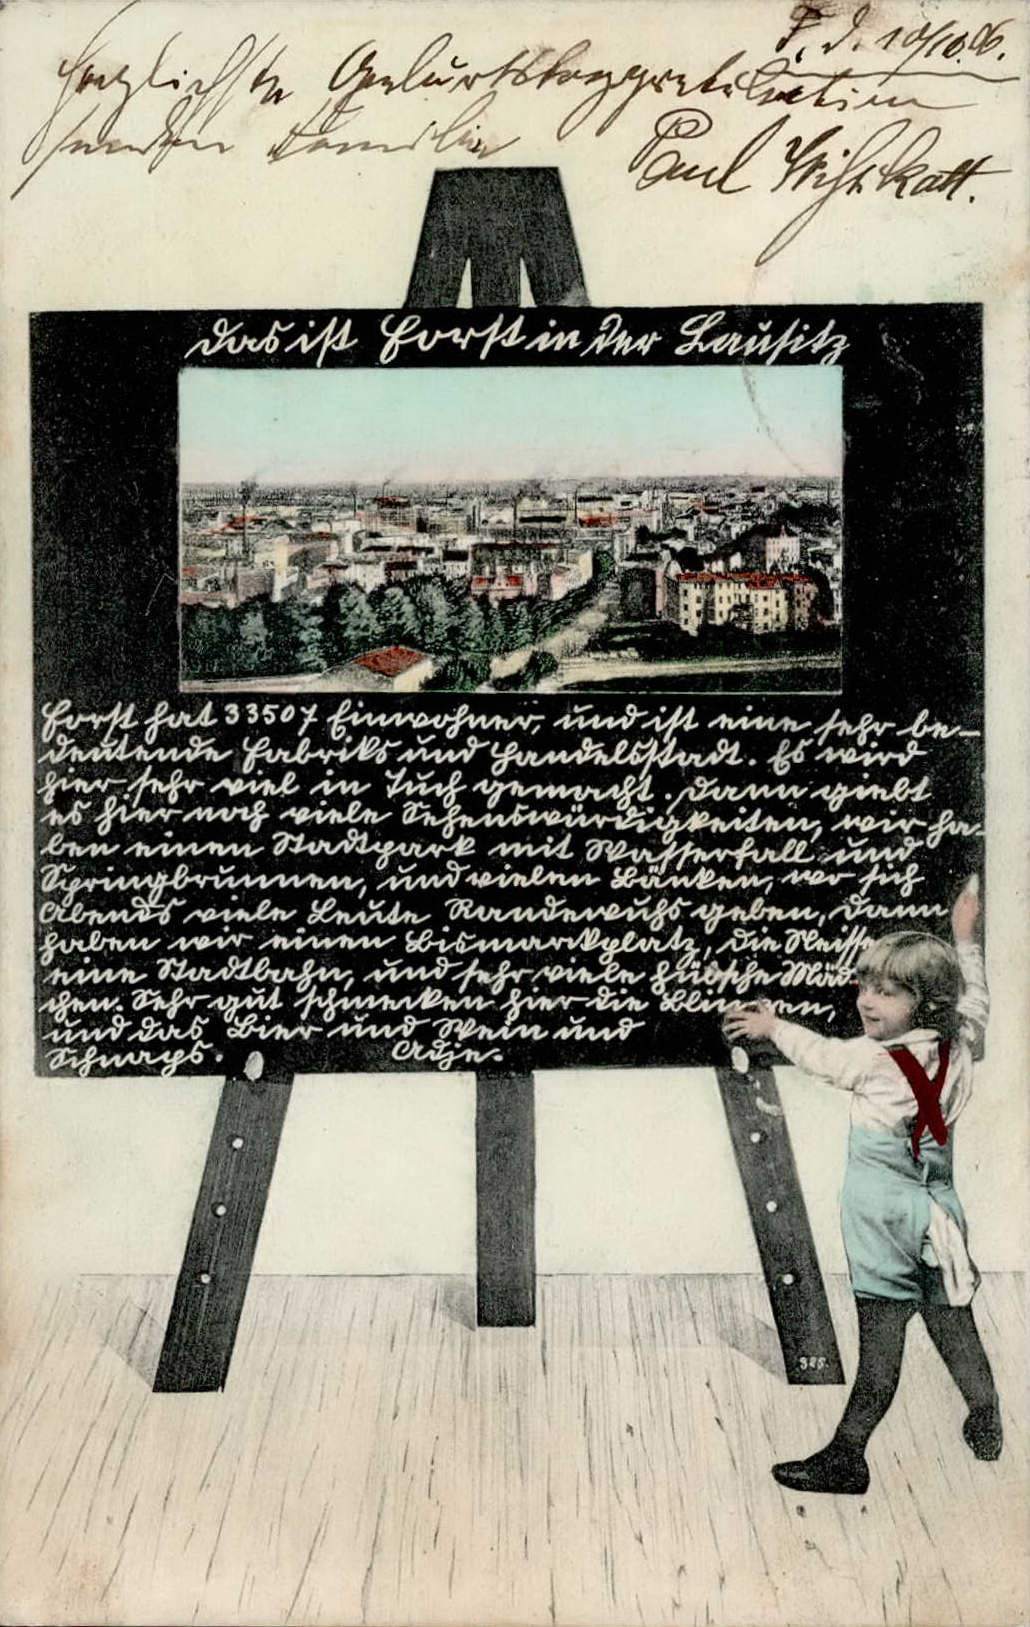 F. d. 10/10.06.
Herzlichste Geburtstaggratulation
senden Familie
Paul
Das ist Forst in der Lausitz
Forst hat 33507 Einwohner, und ist eine sehr be-
deutende Fabriks und Handelsstadt. Es wird
hier sehr viel in Tuch gemacht. Dann giebt
es hier noch viele Sehenswürdigkeiten, wir ha-
ben einen Stadtpark mit Wasserfall und
Springbrunnen, und vielen Bänken, wo sich
Abends viele Leute Randewuhs geben, dann
haben wir einen Bismarckplatz, die Neisse
eine Stadtbahn, und sehr viele hübsche Mäd-
chen. Sehr gut schmecken hier die Blinzen,
und das Bier und Wein und
Schnaps. Adje.
325.